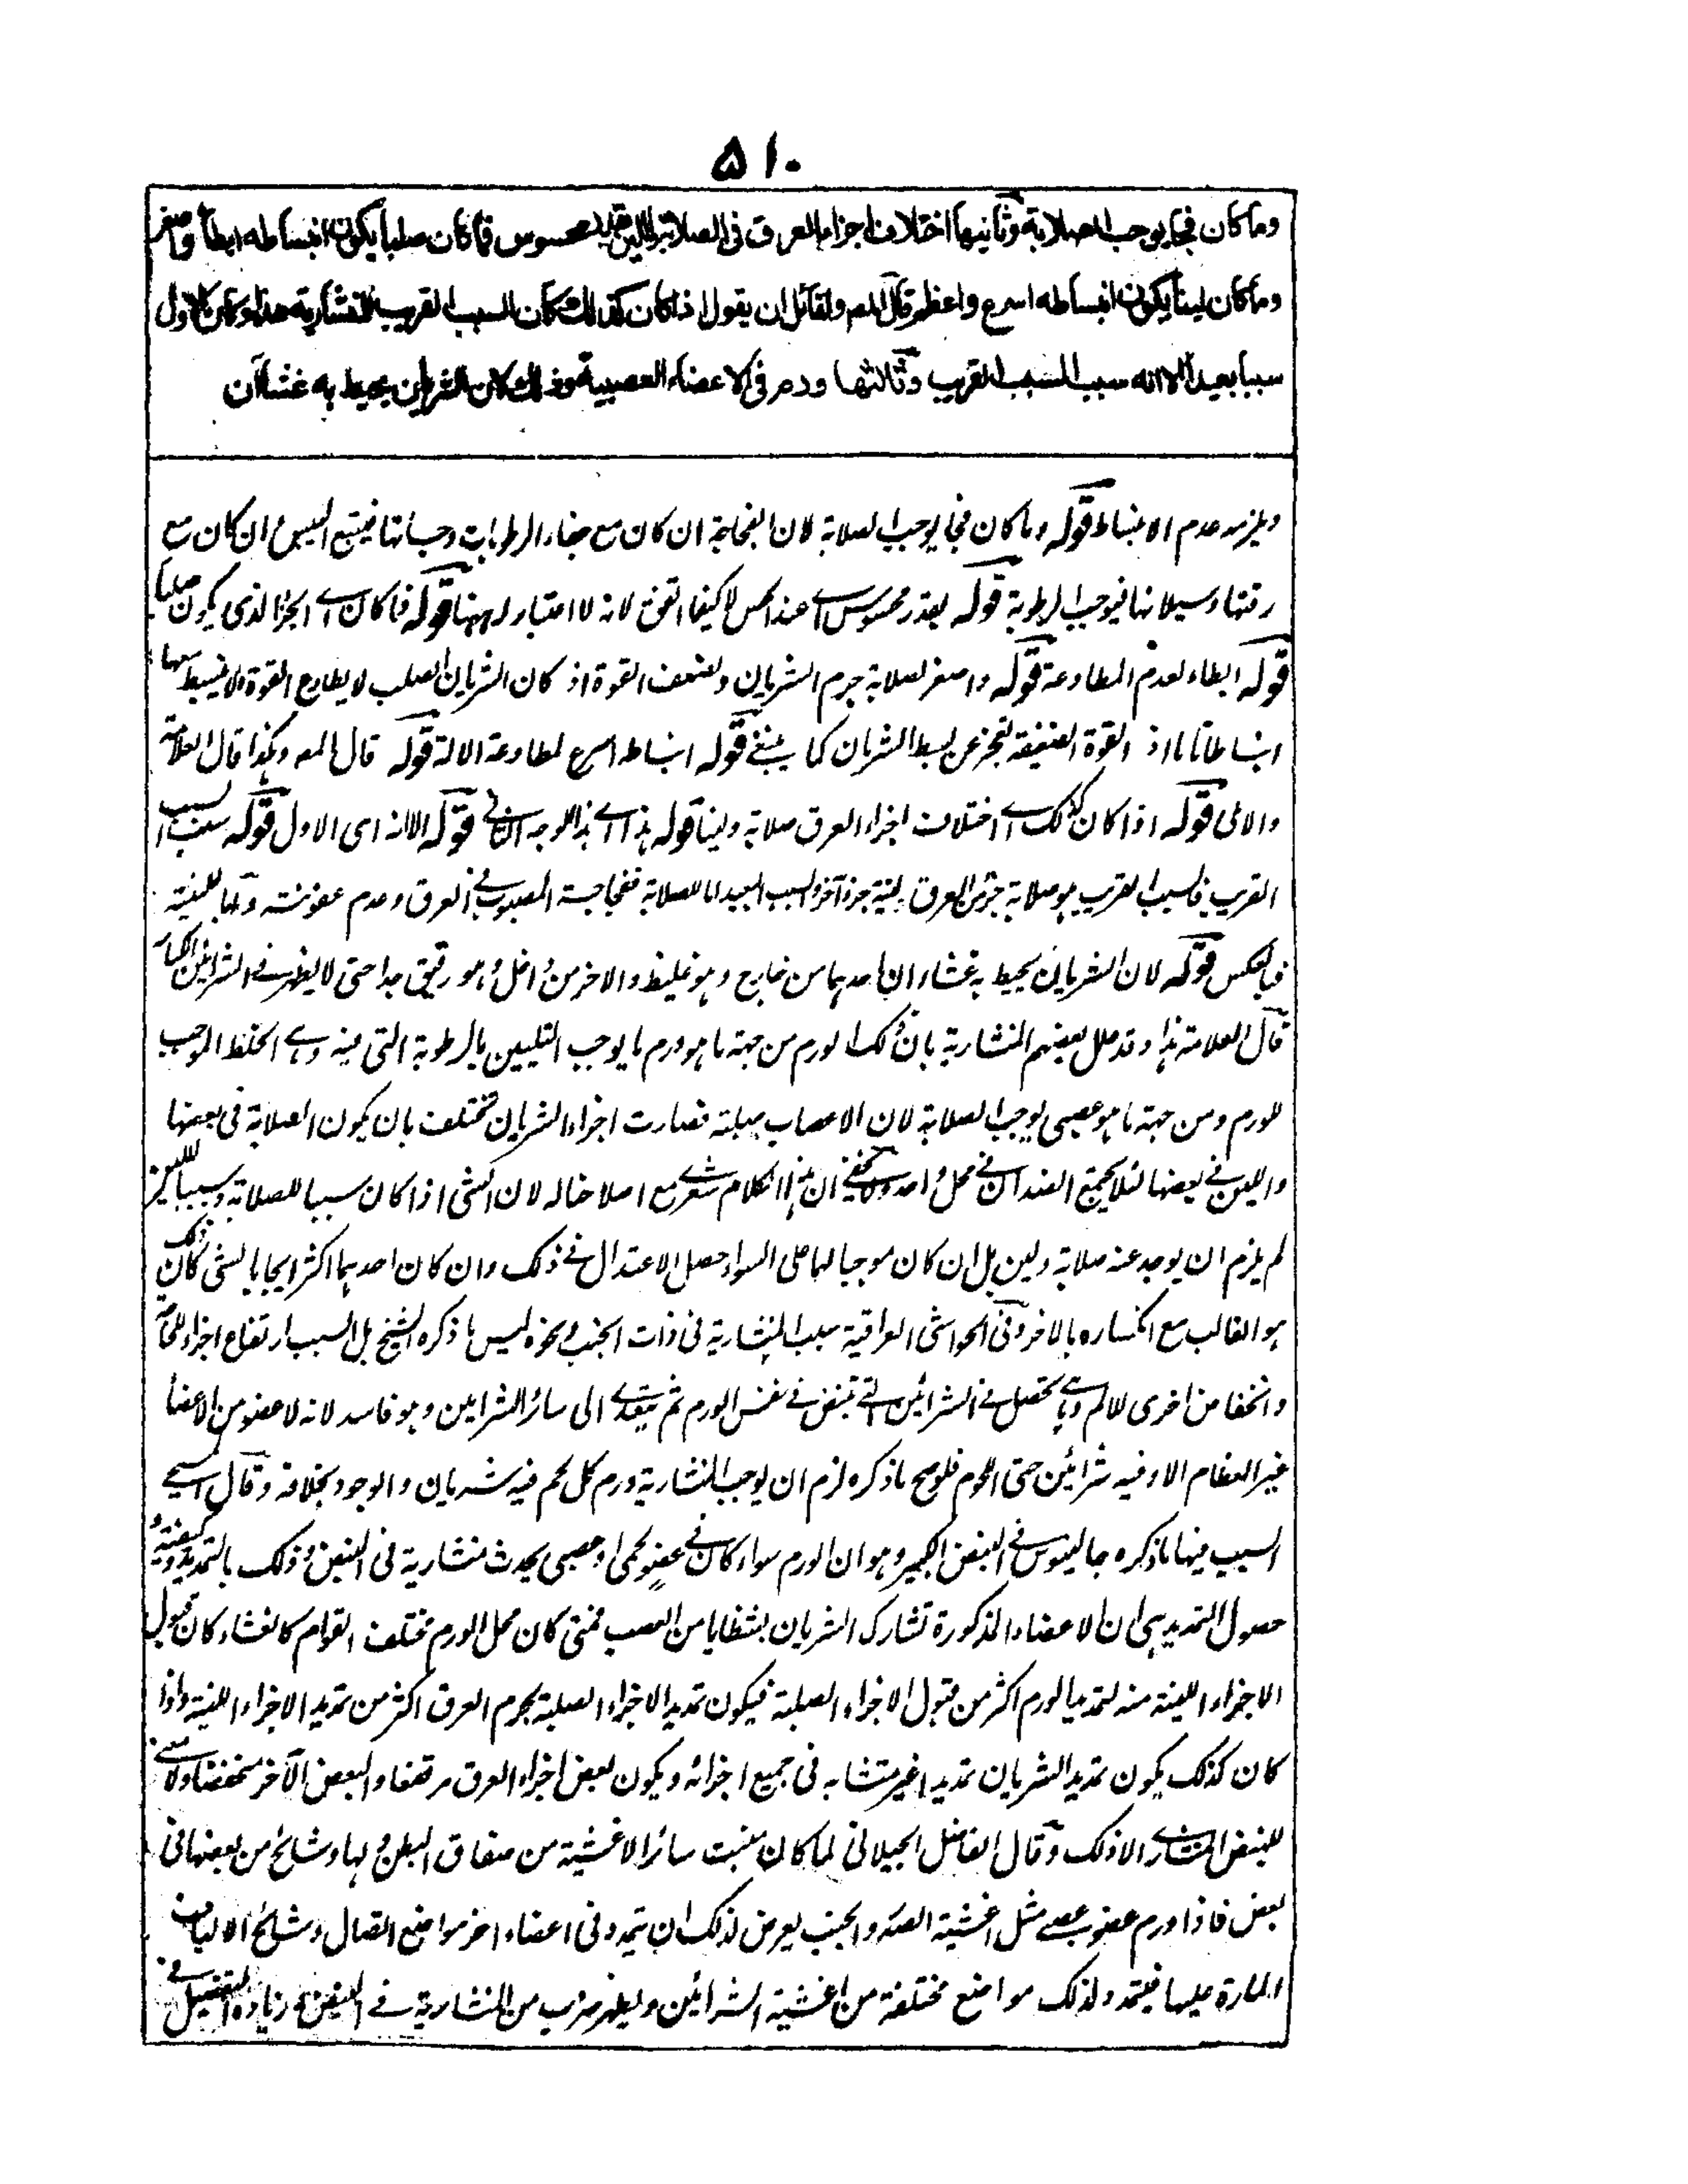 ۵۱۰
وما كان فجا يوجب الصلابة وثانيها اختلاف اجزاء العرق فى الصلابة واللين بقدر محسوس فما كان صلبا يكون انبساطه ابطأ واصغر
وما كان لينا يكون انبساطه اسرع واعظم قال المص ولقائل ان يقول اذا كان كذلك كان السبب القريب للمنشارية هذا وكان الاول
سببا بعيدا الا انه سبب السبب القريب وثالثها ورم فى الاعضاء العصبية وذلك لان الشريان يحيط به غشاآن
ويلزمه عدم الانبساط قوله وما كان فجا يوجب الصلابة لان الفجاجة ان كان مع جفاء الرطوبات وجسائتها فيتبع اليبس وان كان مع
رقتها وسيلانها فيوجب الرطوبة قوله بقدر محسوس اے عند الحس لا كيفما اتفق لانه لا اعتبار له ههنا قوله فما كان اے الجزء الذى يكون صلبا
قوله ابطاء لعدم المطاوعة قوله واصغر لصلابة جرم الشريان ولضعف القوة اذ كان الشريان الصلب لا يطاوع القوة ولا ينبسط بها
انبساطا تاما اذ القوة الضعيفة تعجز عن بسط الشريان كما ينبغے قوله انبساطه اسرع لمطاوعة الالة قوله قال المصه وهكذا قال العلامة
والاملى قوله اذا كان كذلك اے اختلاف اجزاء العرق صلابة ولينا قوله هذا اے هذا الوجه الثانى قوله الا انه اى الاول قوله سبب السبب
القريب فالسبب القريب هو صلابة جزء من العرق ولينة جزء آخر والسبب البعيد اما للصلابة ففجاجة المصبوب فے العرق وعدم عفونته واما للينية
فبالعكس قوله لان الشريان يحيط به غشاء ان احدهما من خارج وهو غليظ والاخر من داخل وهو رقيق جدا حتى لا يظهر فے الشرائين الكبار
قال العلامة هذا وقد علل بعضهم المنشارية بان ذلك الورم من جهة ما هو ورم ما يوجب التليين بالرطوبة التى فيه وهے الخلط الموجب
للورم ومن جهة ما هو عصبى يوجب الصلابة لان الاعصاب صلبة فصارت اجزاء الشريان تختلف بان يكون الصلابة فى بعضها
واللين فے بعضها لئلا يجتمع الضدان فے محل واحد ولا يخفے ان هذا الكلام شعرے مع اصلاحنا له لان الشى اذا كان سببا للصلابة وسببا للين
لم يلزم ان يوجد عنه صلابة ولين بل ان كان موجبا لهما على السواء حصل الاعتدال فے ذلك وان كان احدهما اكثر ايجابا لشى كان ذلك
هو الغالب مع انكساره بالاخر وفى الحواشى العراقية سبب المنشارية فى ذات الجنب ونحوه ليس ما ذكره الشيخ بل السبب ارتفاع اجزاء للحما
وانخفاض اخرى للالم وهما يحصل فے الشرائين التے تنبض فے نفس الورم ثم يتعدے الى سائر الشرايين وهو فاسد لانه لا عضو من الاعضا
غير العظام الا وفيه شرائين حتى اللحوم فلو صح ما ذكره لزم ان يوجب المنشارية ورم كل لحم فيه شريان والوجود بخلافه وقال المسيحے
السبب فيها ما ذكره جالينوس فے النبض الكبير وهو ان الورم سواء كان فے عضو لحمى او عصبى يحدث منشارية فى النبض وذلك بالتمديد وكيفية
حصول التمديد هى ان الاعضاء المذكورة تشارك الشريان بشظايا من العصب فمتى كان محل الورم مختلف القوام كالغشاء كان قبول
الاجزاء اللينة منه لتمديد الورم اكثر من قبول الاجزاء الصلبة فيكون تمديد الاجزاء الصلبة بجرم العرق اكثر من تمديد الاجزاء اللينة واذا
كان كذلك يكون تمديد الشريان تمديدا غير متشابه فى جميع اجزائه ويكون لبعض اجزاء العرق مرتفعا والبعض الآخر منخفضا ولا معنے
للنبض المنشارے الا ذلك وقال الفاضل الجيلانى لما كان منبت سائر الاغشية من صفاق البطن ولها وشائج من بعضها فى
بعض فاذا ورم عضو عصبے مثل اغشية الصدر والجنب يعرض لذلك ان يتمدد فى اعضاء اخر مواضع اتصال وشائج الالياف
المارة عليها فيتمدد لذلك مواضع مختلفة من اغشية الشرائين ويظهر ضرب من المنشارية فے النبض وزيادة التفصيل فے